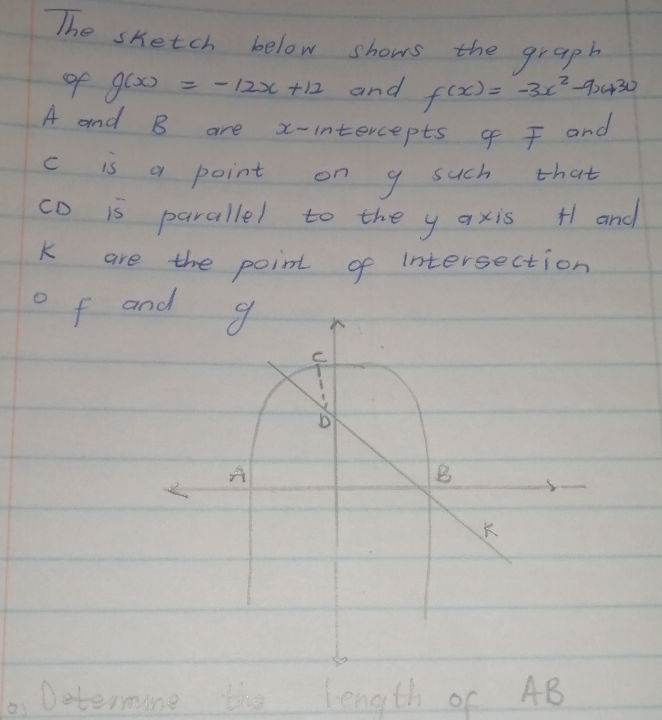 The sketch below shows the graph
of g(x) = -12x +12 and f(x) = -3x² -9x+30
A and B are x-intercepts of F and
C is a point on g such that
CD is parallel to the y axis H and
K are the point of Intersection
of f and g
C
D
A B
K
a. Determine the length of AB